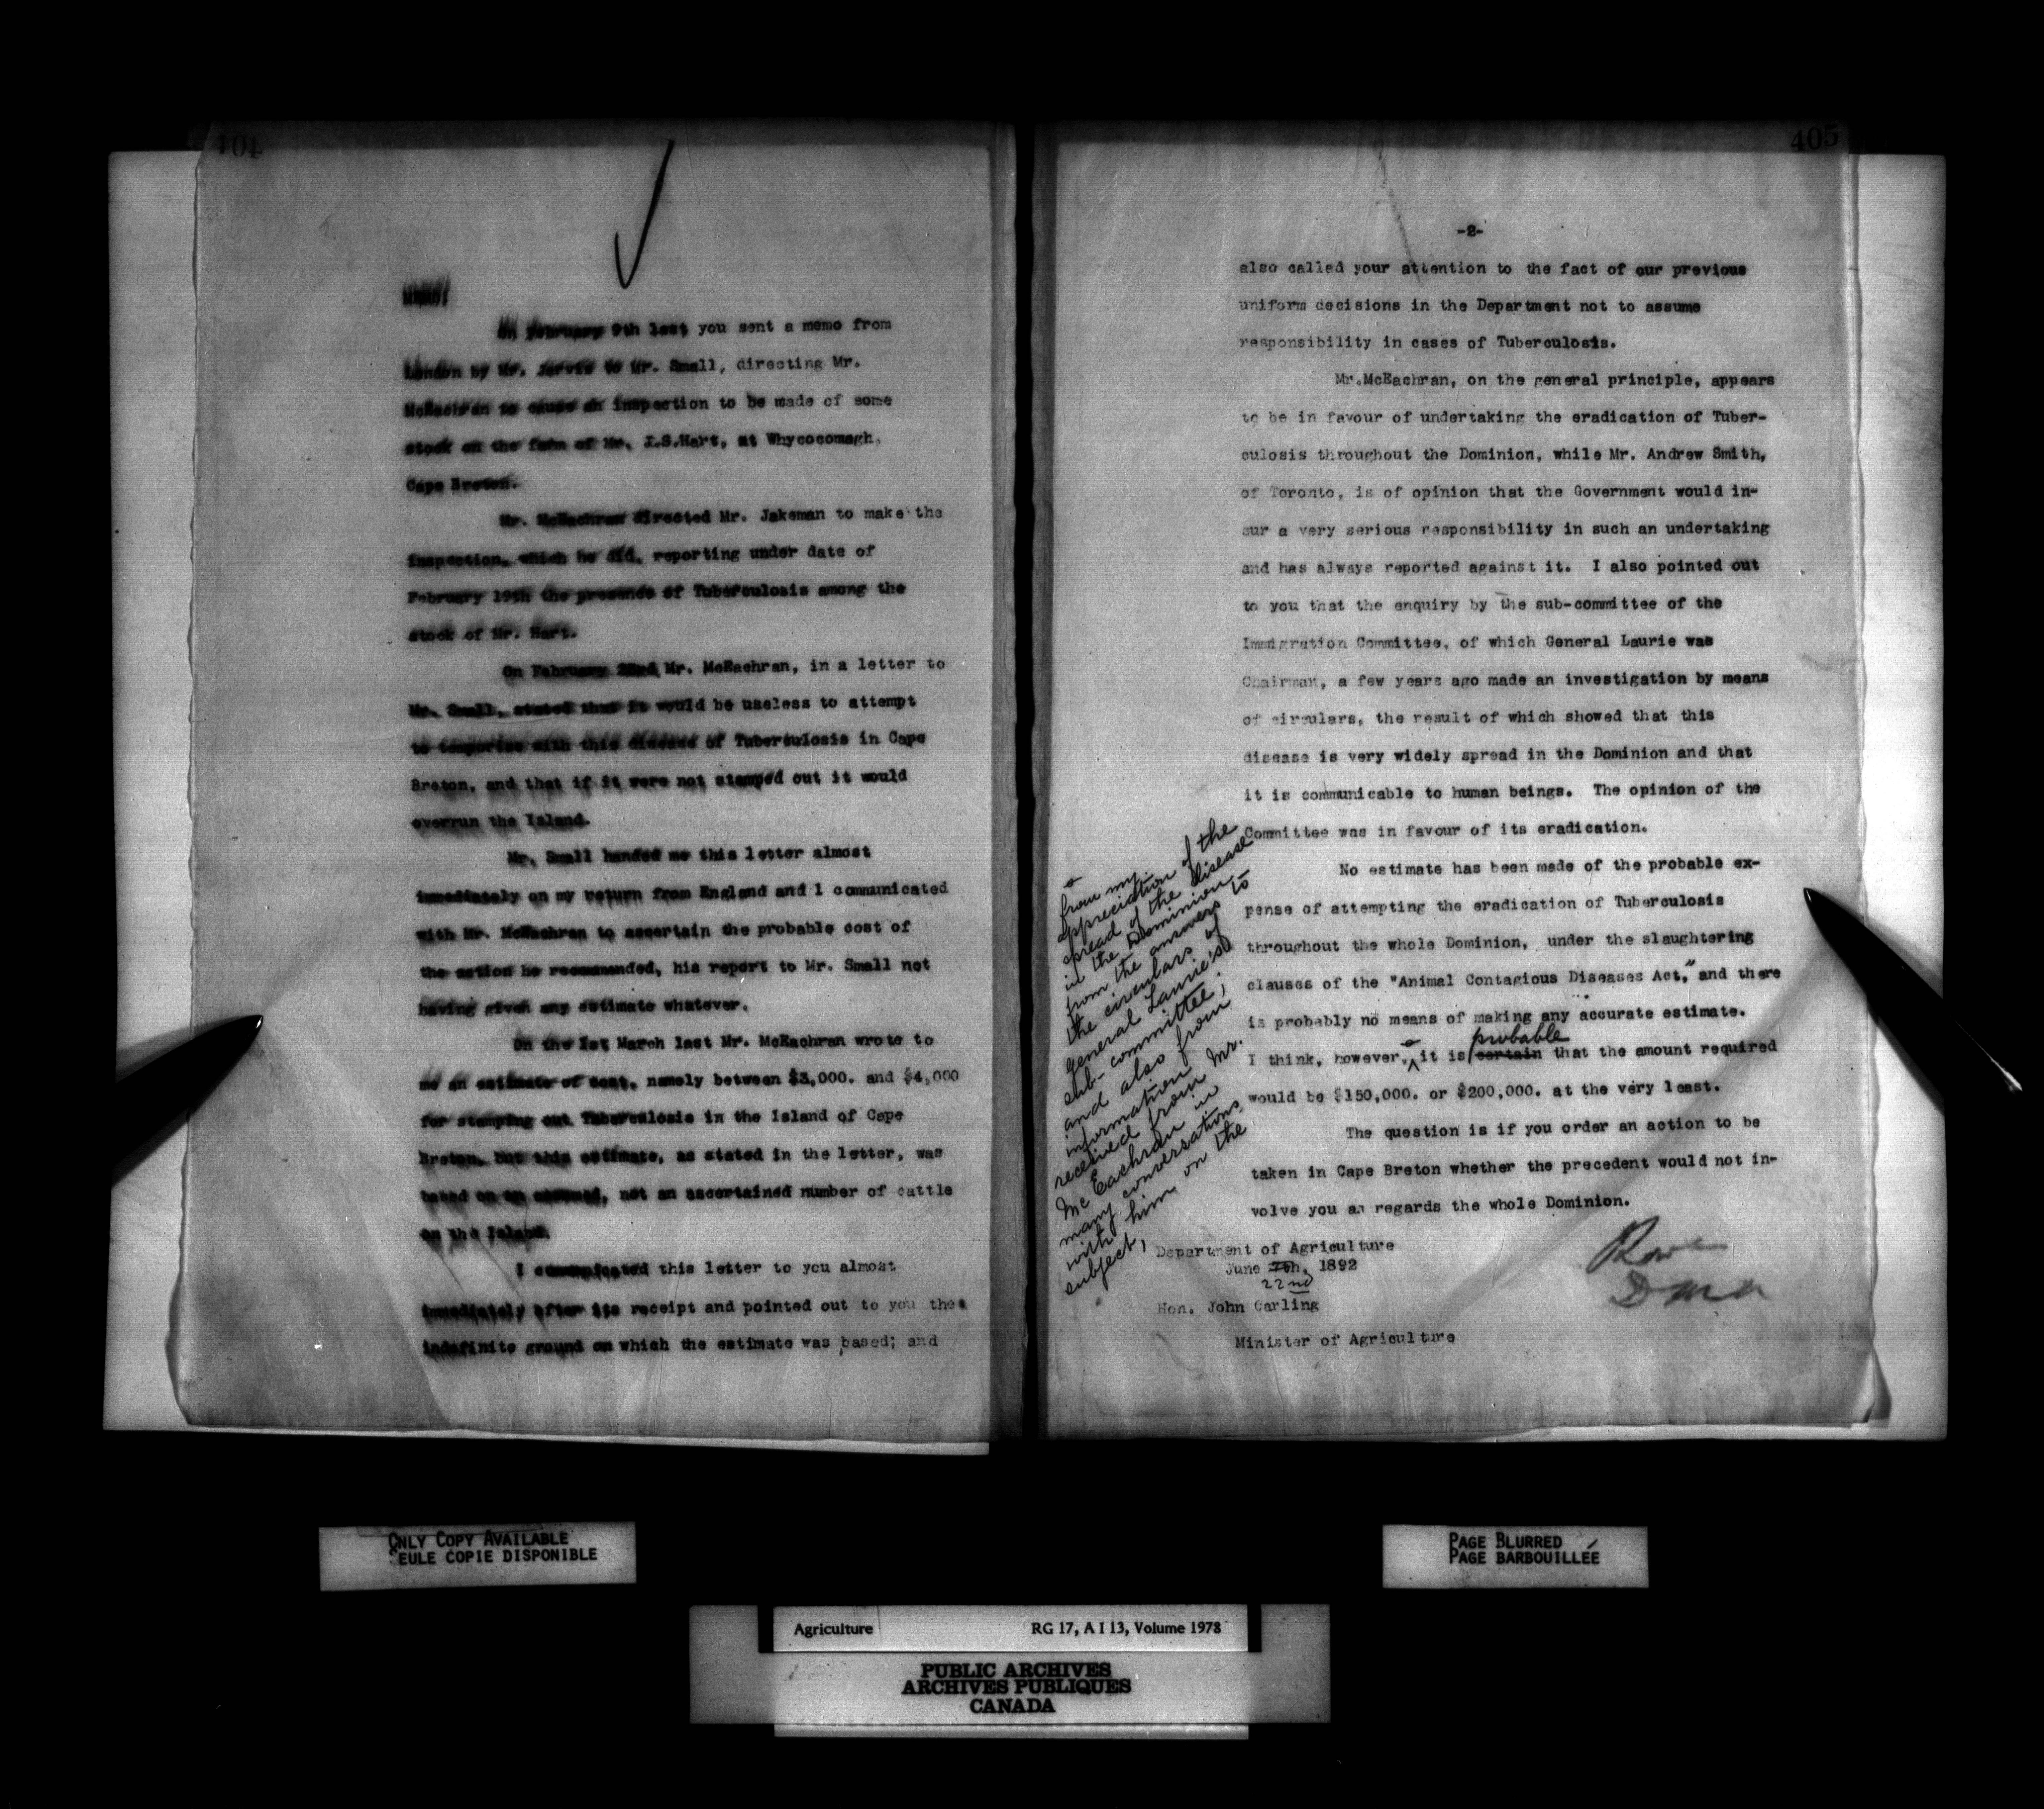 404
On February 9th last you sent a memo from
London by Mr. Jarvis to Mr. Small, directing Mr.
McEachran to cause an inspection to be made of some
stock on the farm of Mr. I.S.Hart, at Whycocomagh,
Cape Breton.
Mr. McEachran directed Mr. Jakeman to make the
inspection, which he did, reporting under date of
February 19th the presence of Tuberculosis among the
stock of Mr. Hart.
On February 22nd Mr. McEachran, in a letter to
Mr. Small, stated that it would be useless to attempt
to temporise with this disease of Tuberculosis in Cape
Breton, and that if it were not stamped out it would
overrun the Island.
Mr. Small handed me this letter almost
immediately on my return from England and I communicated
with Mr. McEachran to ascertain the probable cost of
the action he recommended, his report to Mr. Small not
having given any estimate whatever.
On the 1st March last Mr. McEachran wrote to
me an estimate of cost, namely between $3,000. and $4,000
for stamping out Tuberculosis in the Island of Cape
Breton, but this estimate, as stated in the letter, was
based on an assumed, not an ascertained number of cattle
on the Island.
I communicated this letter to you almost
immediately after its receipt and pointed out to you the
indefinite ground on which the estimate was based; and
405
-2-
also called your attention to the fact of our previous
uniform decisions in the Department not to assume
responsibility in cases of Tuberculosis.
Mr.McEachran, on the general principle, appears
to be in favour of undertaking the eradication of Tuber-
culosis throughout the Dominion, while Mr. Andrew Smith,
of Toronto, is of opinion that the Government would in-
cur a very serious responsibility in such an undertaking
and has always reported against it. I also pointed out
to you that the enquiry by the sub-committee of the
Immigration Committee, of which General Laurie was
Chairman, a few years ago made an investigation by means
of circulars, the result of which showed that this
disease is very widely spread in the Dominion and that
it is communicable to human beings. The opinion of the
Committee was in favour of its eradication.
No estimate has been made of the probable ex-
pense of attempting the eradication of Tuberculosis
throughout the whole Dominion, under the slaughtering
clauses of the "Animal Contagious Diseases Act," and there
is probably no means of making any accurate estimate.
probable
I think, however, it is certain that the amount required
would be $150,000. or $200,000. at the very least.
The question is if you order an action to be
taken in Cape Breton whether the precedent would not in-
volve you as regards the whole Dominion.
from my
appreciation of the
spread of the disease
in the Dominion
from the answers to
the circulars of
General Laurie's
sub-committee;
and also from
information
received from Mr.
McEachran in
many conversations
with him on the
subject,
Department of Agriculture
June 7th, 1892
22nd
Hon. John Carling
Minister of Agriculture
ONLY COPY AVAILABLE
SEULE COPIE DISPONIBLE
PAGE BLURRED
PAGE BARBOUILLÉE
Agriculture RG 17, A I 13, Volume 1978
PUBLIC ARCHIVES
ARCHIVES PUBLIQUES
CANADA